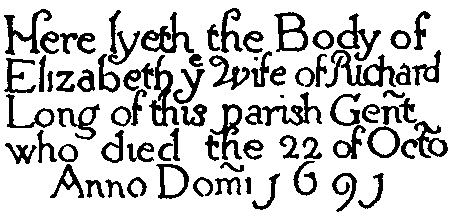 Here lyeth the Body of
Elizabeth yͤ Wife of Richard
Long of this parish Gen̄t
who died the 22 of Octõ
Anno Dom̃i 1691